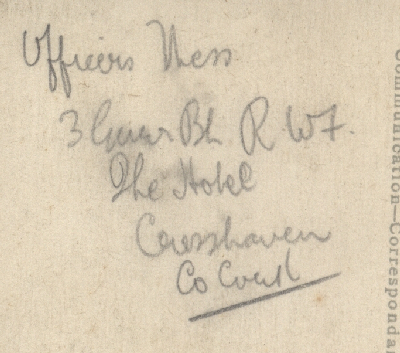 Officers Mess
3 Garr Bn R.W.F.
The Hotel
Crosshaven
Co Cork
Communication—Corresponda